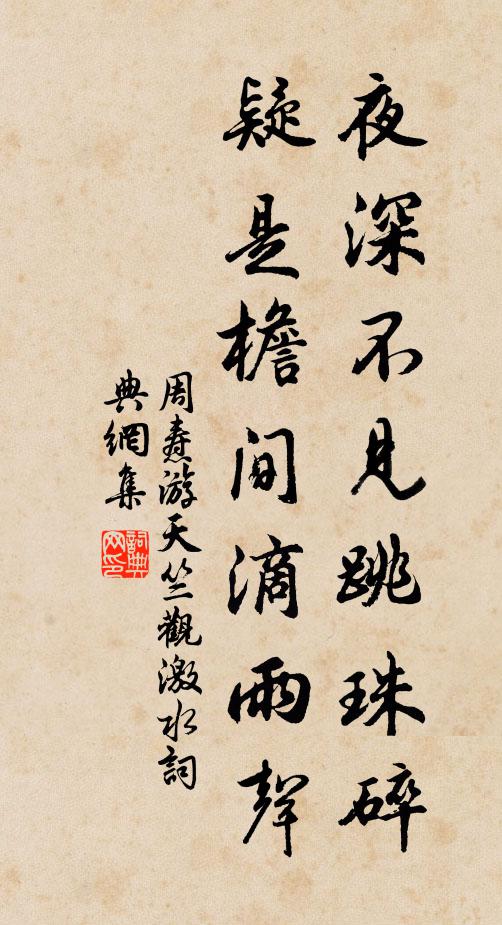 夜深不見跳珠碎
疑是檐間滴雨聲
周燾游天竺觀激水詞
典網集
詞典網印